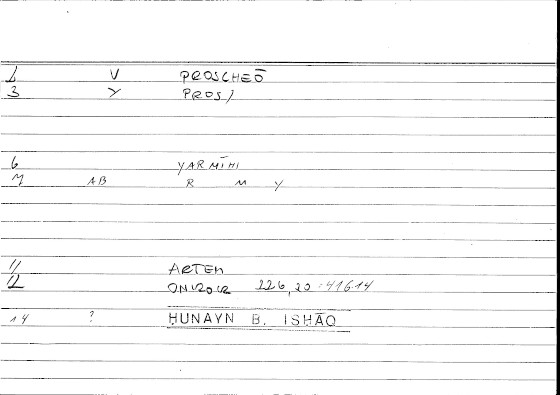 1 V PROSCHEŌ
3 Y PROSJ
6 YARMĪHI
7 AB R M Y
11 ARTEM
12 ONIROCR 226,20-416.14
14 ? ḤUNAYN B. ISḤĀQ